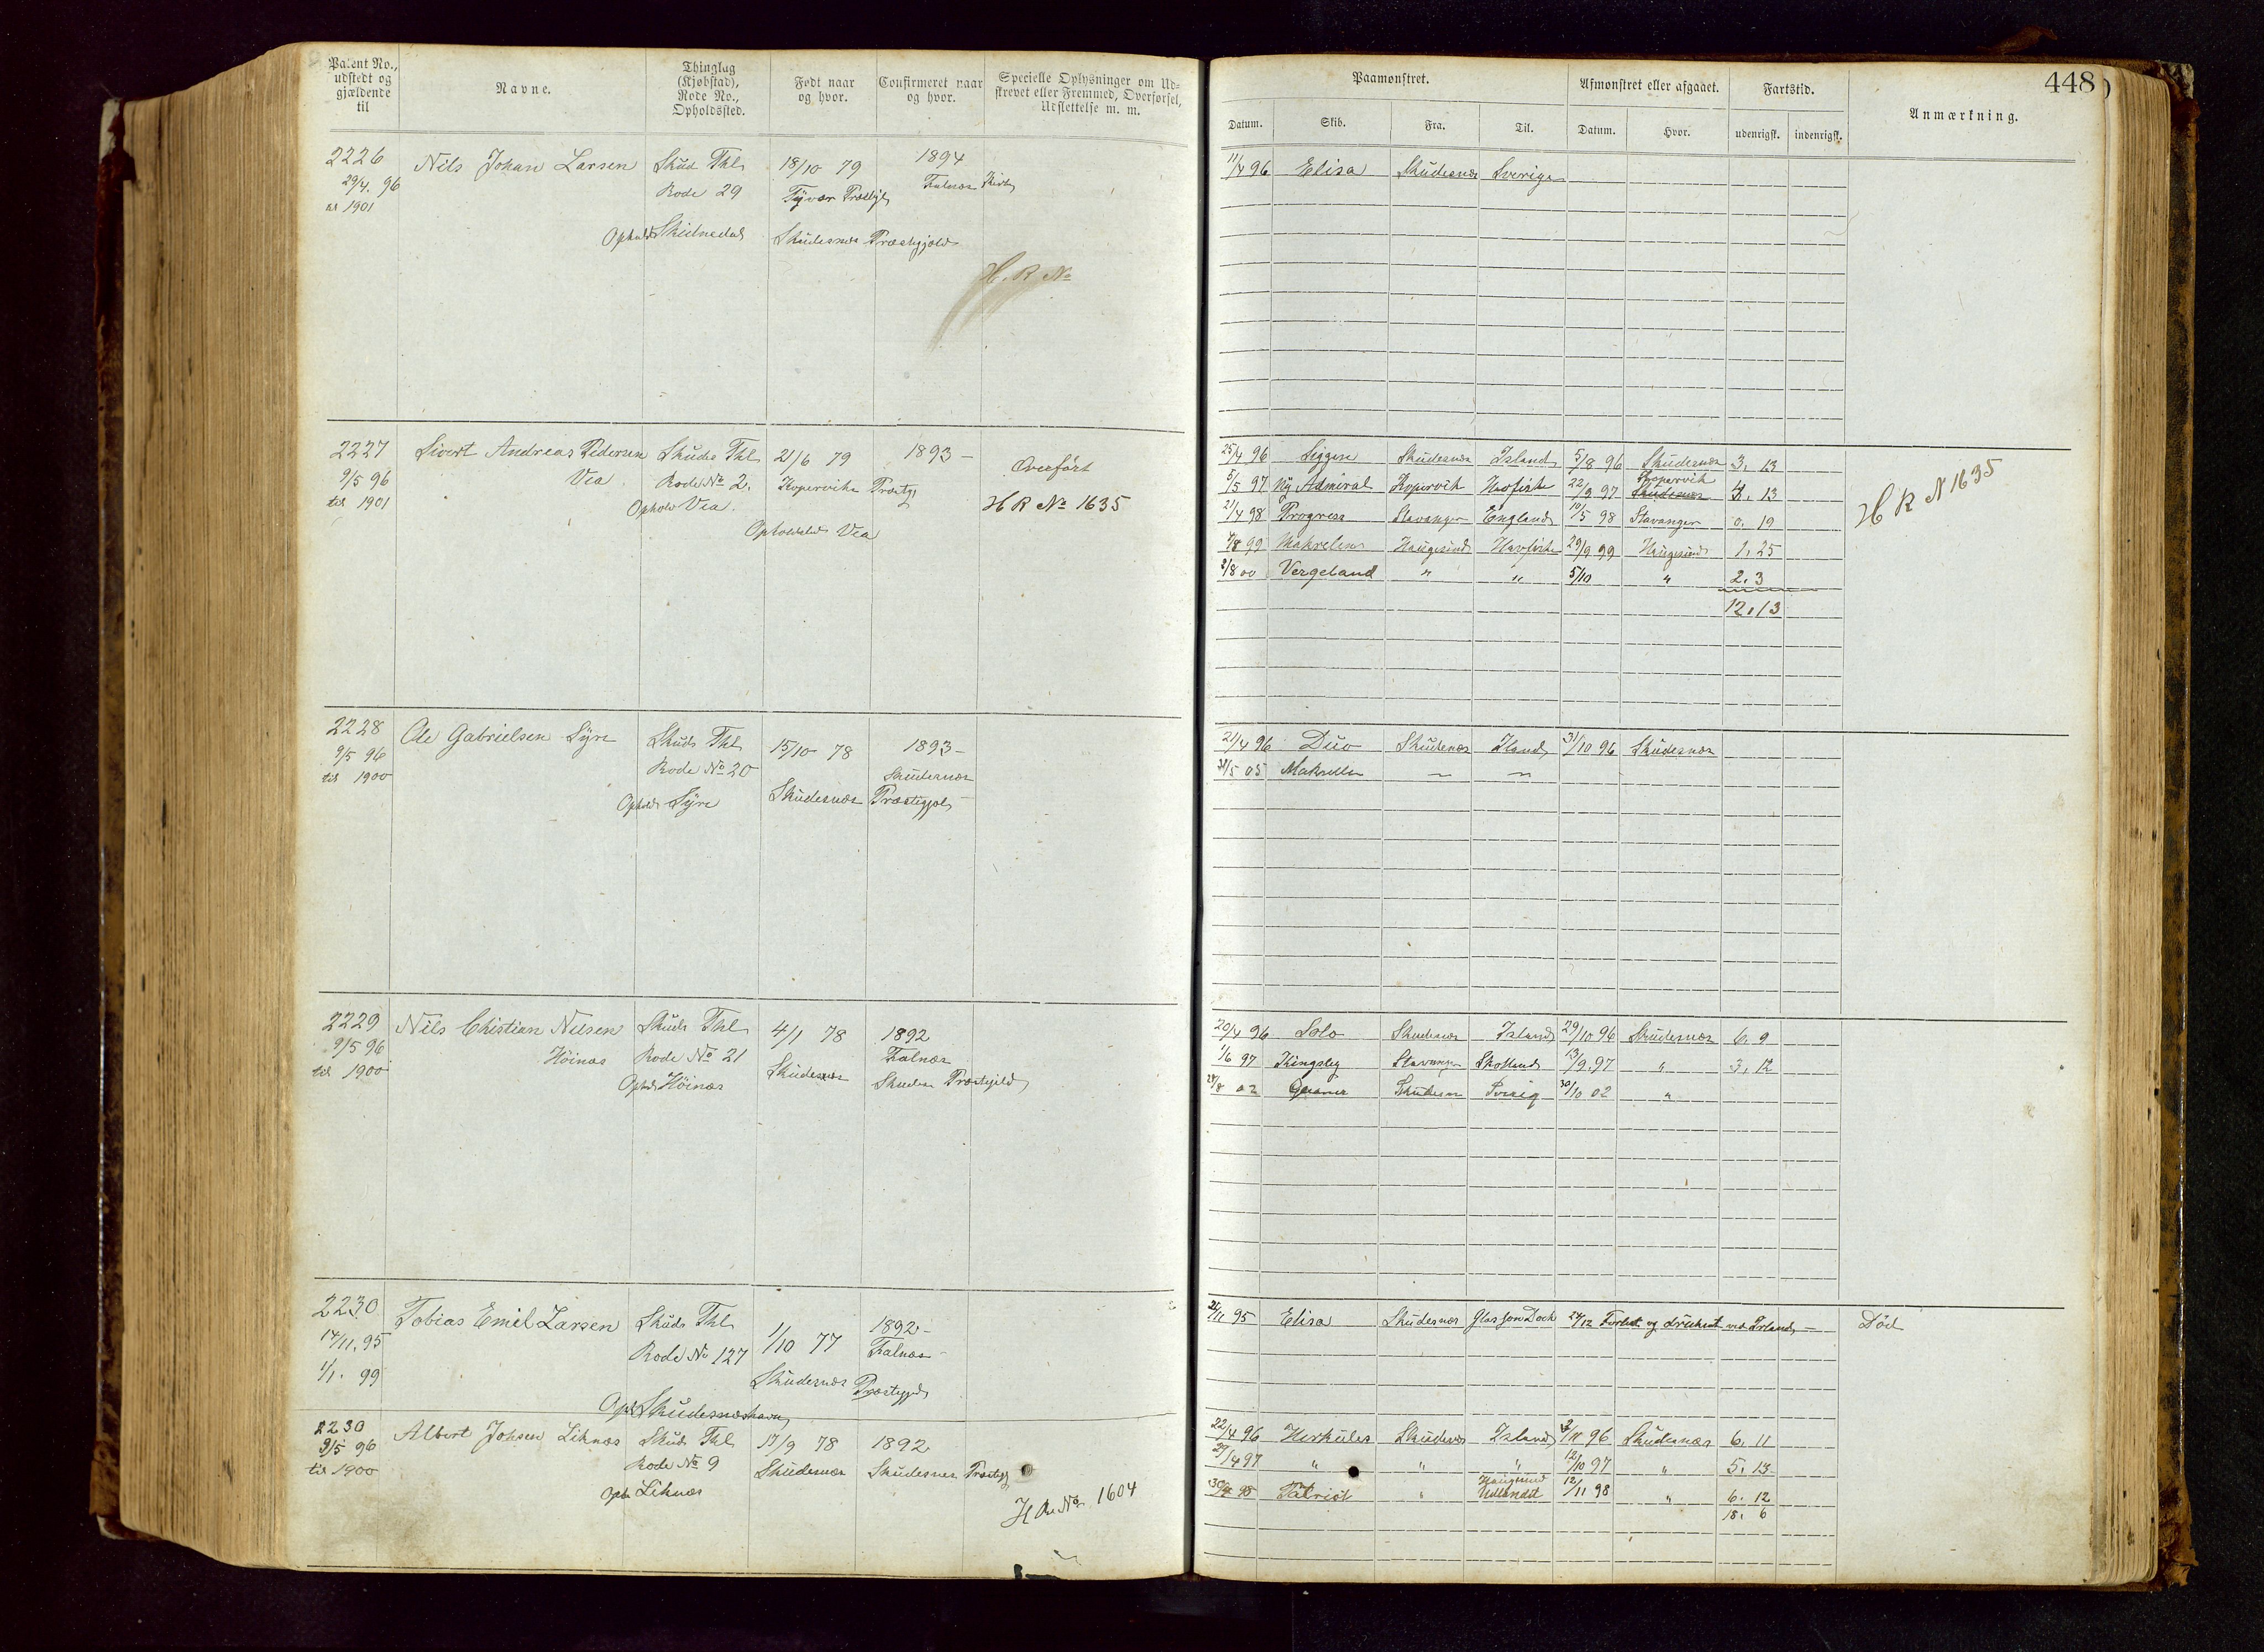 448
Patent No., udstedt og gjældende til
Navne.
Thinglag (Kjøbstad), Rode No., Opholdssted.
Født naar og hvor.
Confirmeret naar og hvor.
Specielle Oplysninger om Udskrevet eller Fremmed, Overførsel, Udslettelse m. m.
Paamønstret.
Afmønstret eller afgaaet.
Fartstid.
Anmærkning.
Datum. Skib. Fra. Til. Datum. Hvor. udenrigsk. indenrigsk.
2226 Nils Johan Larsen Skud Thl 18/10 79 1894
29/4. 96 Rode 29 Tysvær Falnæs Kirke
1901
Ophold Skudesnæs Præstegjeld
H. R No
11/4 96 Elisa Skudesnæs Sverige
2227 Sivert Andreas Pedersen Skuds Thl 21/6 79 1893 - Overført
9/5 96 Vea Rode No 2. Kopervik Præstg
til 1901 Ophold Vea. H R No 1635
Opholdsted Vea
25/4 96 Siggen Skudesnæs Island 5/8 96 Skudesnæs 3. 13
Kopervik
5/5 97 Ny Admiral Kopervik Havfiske 22/9 97 Skudesnæs 4. 13
21/4 98 Progress Stavanger England 10/5 98 Stavanger 0. 19
7/8 99 Makrelen Haugesund Havfiske 29/9 99 Haugesund 1. 25
2/8 00 Vergeland " " 5/10 " 2. 3
12. 13
H R N 1635
2228 Ole Gabrielsen Syre Skuds Thl 15/10 78 1893 -
9/5 96 Rode No 20 Skudesnæs
til 1900 Ophold Syre Skudesnæs Præstegjel
21/4 96 Duo Skudesnæs Island 31/10 96 Skudesnæs
31/5 05 Makrellen — —
2229 Nils Christian Nilsen Skuds Thl 4/1 78 1892
9/5 96 Höinæs Rode No 21 Falnæs
til 1900 Oph Höinæs Skudesnæs Skudesn Præstegjeld
20/4 96 Solo Skudesnæs Island 29/10 96 Skudesnæs 6. 9
1/6 97 Kingsley Stavanger Skotland 13/9. 97 " 3. 12
28/8 02 Skudesn Sverig 30/10 02 "
2230 Tobias Emil Larsen Skuds Thl 1/10 77 1892 -
14/11. 95 Rode No 127 Falnæs
1/1. 99 Skudesnæs Præstegjeld
Oph Skudesnæshavn
21/11 95 Elisa Skudesnæs Glasson Dock 24/12 Forlist og druknet ved Irland — Död
2230 Albert Johsen Liknæs Skuds Thl 17/9 78 1892
9/5 96 Rode No 9 Skudesnæs Skudesnæs Præstegj
til 1900 Oph Liknæs
H R No 1604
22/4 96 Herkules Skudesnæs Island 2/11 96 Skudesnæs 6. 11
29/4 97 " " " 12/10 97 " 5. 13
Haugesund
30/4 98 Patriot " Udlandet 12/11 98 " 6. 12
18. 6